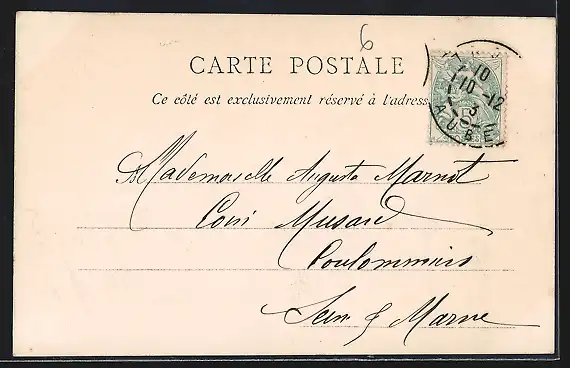 6
CARTE POSTALE
Ce côté est exclusivement réservé à l'adresse
10
10-12
AUBE
Mademoiselle Augusta Marnot
Coin Musard
Coulommiers
Seine & Marne